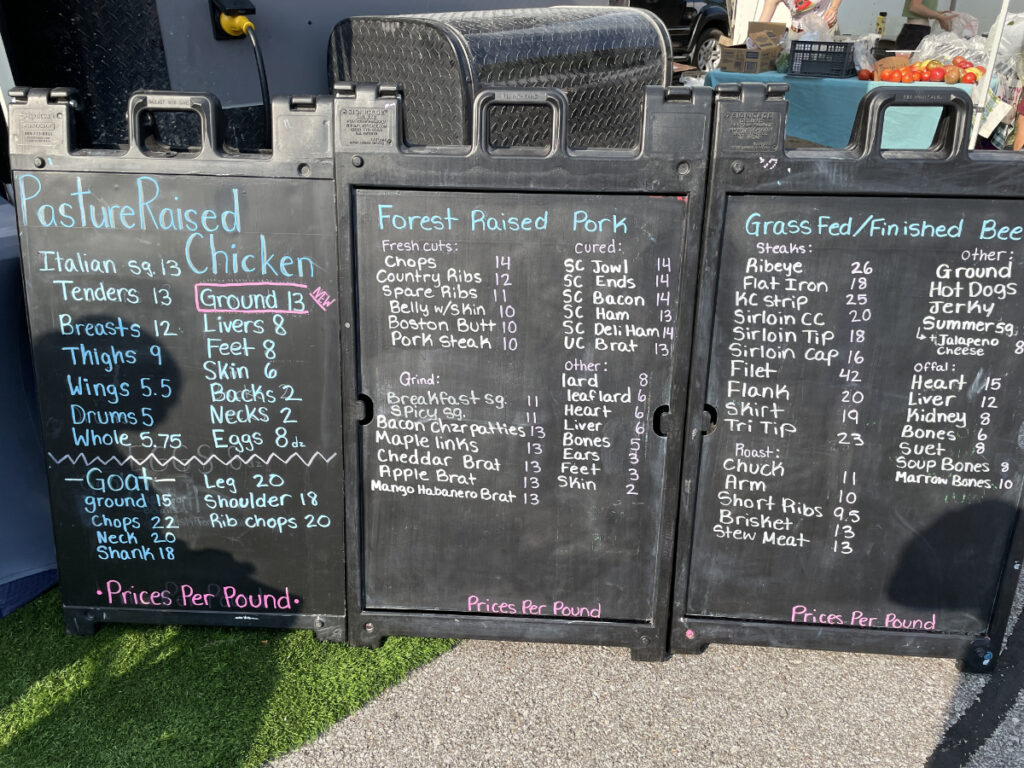 Pasture Raised
Chicken
Italian sq. 13
Tenders 13
Breasts 12
Thighs 9
Wings 5.5
Drums 5
Whole 5.75
Ground 13 NEW
Livers 8
Feet 8
Skin 6
Backs 2
Necks 2
Eggs 8 dz
-Goat-
ground 15
Chops 22
Neck 20
Shank 18
Leg 20
Shoulder 18
Rib chops 20
•Prices Per Pound•
Forest Raised Pork
Fresh cuts:
Chops 14
Country Ribs 12
Spare Ribs 11
Belly w/skin 10
Boston Butt 10
Pork steak 10
Grind:
Breakfast sq. 11
Spicy sq. 11
Bacon chzr patties 13
Maple links 13
Cheddar Brat 13
Apple Brat 13
Mango Habanero Brat 13
cured:
SC Jowl 14
SC Ends 14
SC Bacon 14
SC Ham 13
SC Deli Ham 14
UC Brat 13
Other:
lard 8
leaf lard 6
Heart 6
Liver 6
Bones 5
Ears 3
Feet 3
Skin 2
Prices Per Pound
Grass Fed/Finished Bee
Steaks:
Ribeye 26
Flat Iron 18
KC strip 25
Sirloin CC 20
Sirloin Tip 18
Sirloin Cap 16
Filet 42
Flank 20
Skirt 19
Tri Tip 23
Roast:
Chuck 11
Arm 10
Short Ribs 9.5
Brisket 13
Stew Meat 13
other:
Ground
Hot Dogs
Jerky
Summer sq.
↳+Jalapeno 8
Cheese
Offal:
Heart 15
Liver 12
Kidney 8
Bones 6
Suet 8
Soup Bones 8
Marrow Bones 10
Prices Per Pound